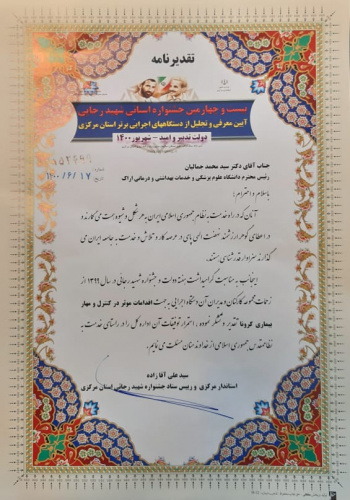 تقدیرنامه
بیست و چهارمین جشنواره استانی شهید رجائی
آیین معرفی و تجلیل از دستگاههای اجرایی برتر استان مرکزی
دولت تدبیر و امید - شهریور ۱۴۰۰
شماره
تاریخ ۱۴۰۰/۶/۱۷
جناب آقای دکتر سید محمد جمالیان
رئیس محترم دانشگاه علوم پزشکی و خدمات بهداشتی و درمانی اراک
با سلام و احترام؛
آنان که در راه خدمت به نظام جمهوری اسلامی ایران به هر شکل و شیوه همت می گمارند و
در اعتلای گوهر ارزشمند نهضت الهی پای در عرصه کار و تلاش و خدمت به جامعه ایران می
گذارند سزاوار قدرشناسی هستند.
اینجانب به مناسبت گرامیداشت هفته دولت و جشنواره شهید رجائی در سال ۱۳۹۹ از
زحمات مجموعه کارکنان و مدیران آن دستگاه اجرایی به جهت اقدامات موثر در کنترل و مهار
بیماری کرونا تقدیر و تشکر نموده، استمرار توفیقات آن اداره کل را در راستای خدمت به
نظام مقدس جمهوری اسلامی از خداوند منان مسئلت می نمایم.
سید علی آقا زاده
استاندار مرکزی و رییس ستاد جشنواره شهید رجائی استان مرکزی